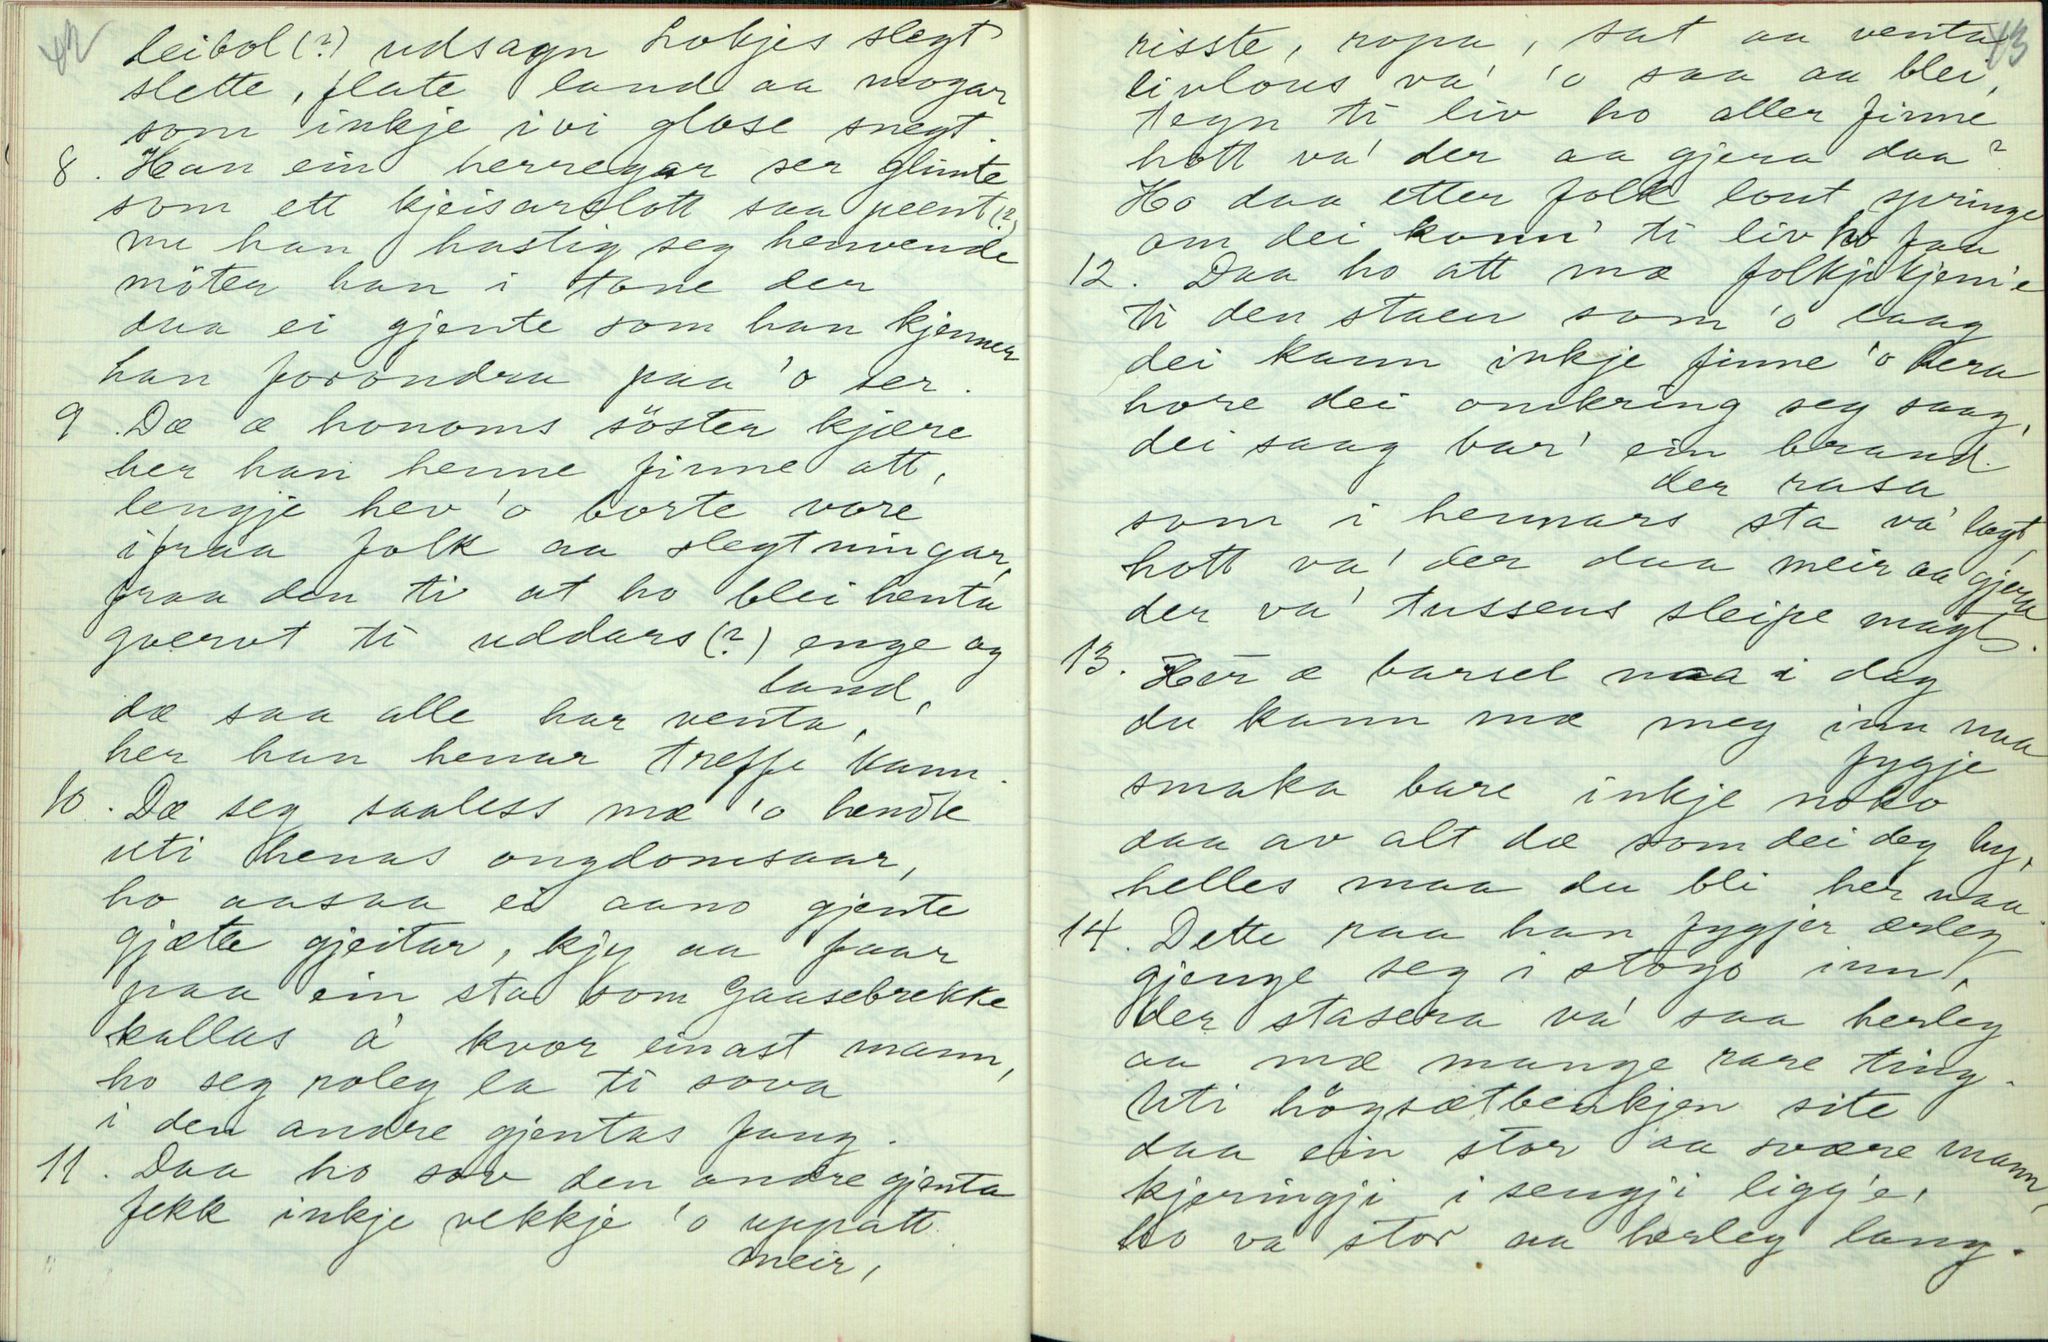 42
Leibol(?) udsagn Lokjes slegt
slette, flate land aa mogar
som inkje ivi glose snegt.
8. Han ein herregar ser glinte
som ett kjeisarslott saa peent(?)
nu han hastig seg henvende
möter han i tone der
daa ei gjente som han kjenner
han forondra paa 'o ser.
9. Dæ æ honoms söster kjære
her han henne finne att,
lengje hev 'o borte vore
ifraa folk aa slegtningar,
fraa den ti at ho blei henta
gvervt ti uddars(?) enge og
land,
dæ saa alle har venta,
her han henar treffe kann.
10. Dæ seg saaless mæ 'o hendte
uti henas ongdomsaar,
ho aasaa ei aano gjente
gjætte gjeitar, kjy aa faar
paa ein sta som Gaasebrekke
kallas á kvor einast mann,
ho seg roleg la ti sova
i den andre gjentas fang.
11. Daa ho sov den andre gjenta
fekk inkje vekkje 'o uppatt
meir,
43
risste, ropa, sat aa venta
livlous va' 'o saa aa blei,
tegn ti liv ho aller finne
hott va' der aa gjera daa?
Ho daa etter folk lout springe
om dei konn' ti liv ho faa
12. Daa ho att mæ folkje kjem'e
ti den staen som 'o laag
dei kann inkje finne 'o hera
hore dei omkring seg saag,
dei saag bar' ein brand
der rasa
som i hennars sta va' lagt,
hott va' der daa meir aa gjera
der va' tussens sleipe magt.
13. Her æ barsel naa i dag
du kann mæ meg inn naa
fygje
smaka bare inkje noko
daa av alt dæ som dei deg by,
helles maa du bli her naa.
14. Dette raa han fygjer ærleg
gjenge seg i stogo inn,
der stasera va' saa herleg
aa mæ mange rare ting.
Uti högsætbenkjen site
daa ein stor aa svære mann,
kjeringji i sengji ligg'e,
ho va stor aa herleg lang.